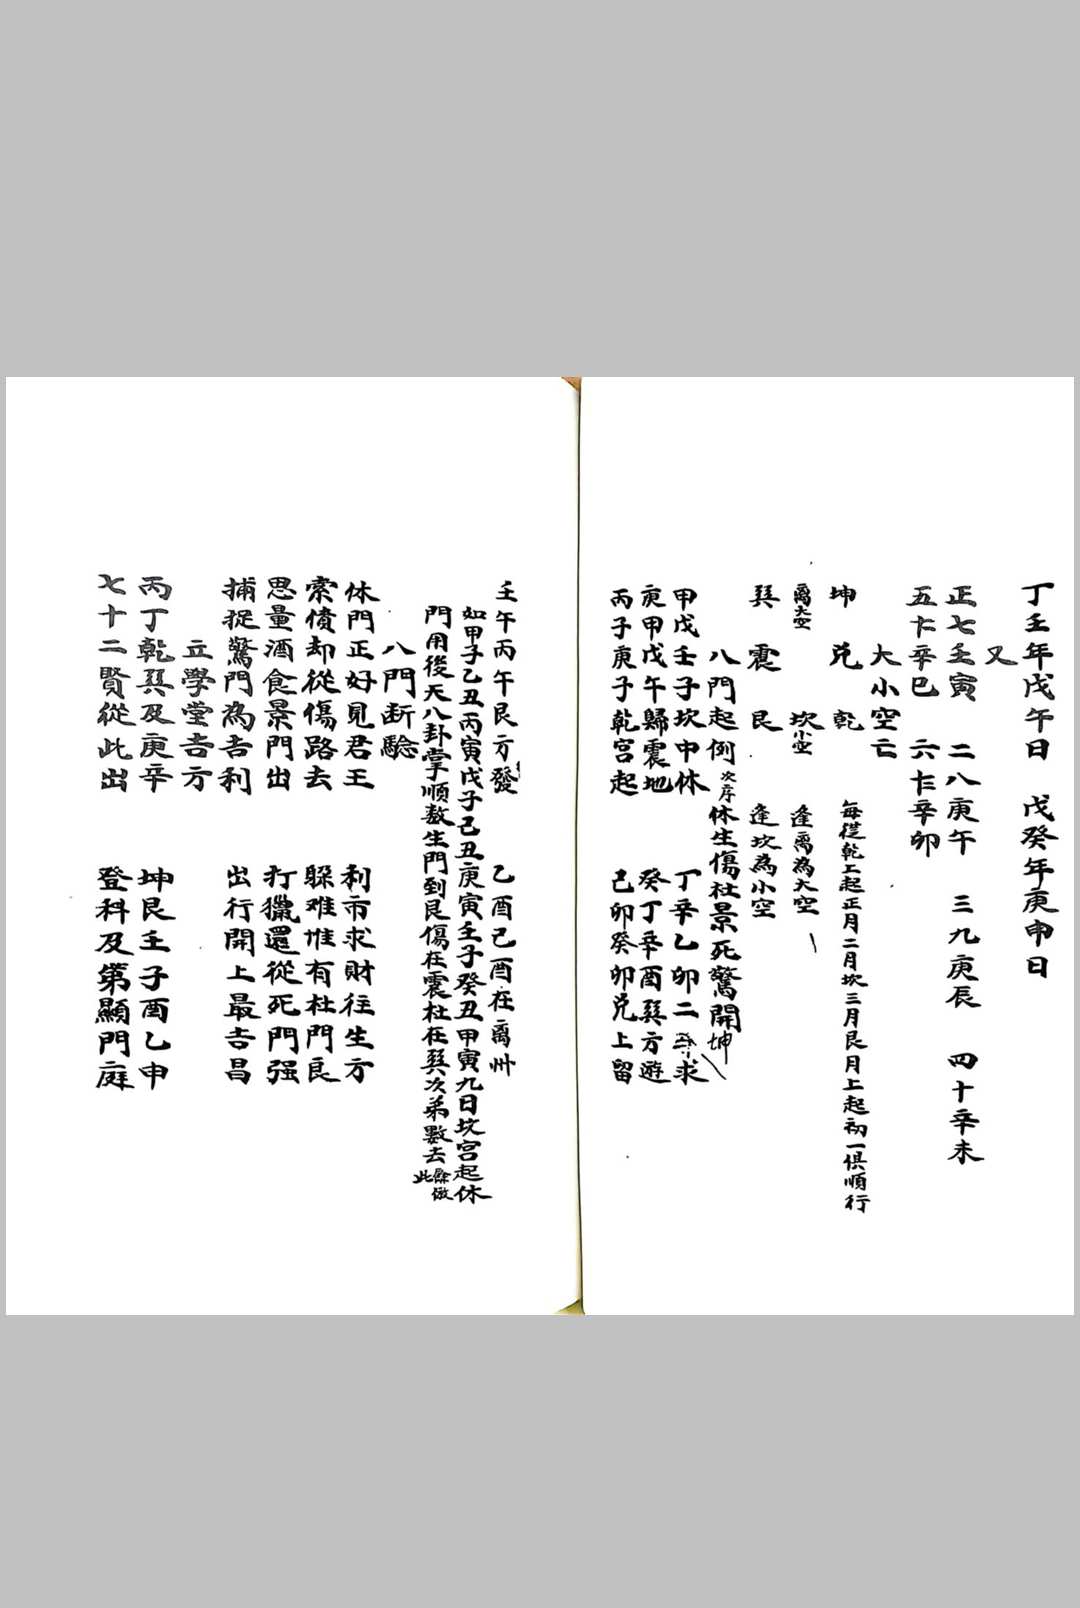 丁壬年戊午日　戊癸年庚申日
又
正七壬寅　二八庚午　三九庚辰　四十辛未
五十一辛巳　六十二辛卯
大小空亡
坤　兌　乾　每從乾上起正月二月坎三月艮月上起初一俱順行
離大空　坎小空　逢離為大空
巽　震　艮　逢坎為小空
八門起例次序休生傷杜景死驚開坤
甲戊壬子坎中休　丁辛乙卯二求
庚甲戊午歸震地　癸丁辛酉巽方遊
丙子庚子乾宮起　己卯癸卯兌上留
壬午丙午艮方發　乙酉己酉在离艸
如甲子乙丑丙寅戊子己丑庚寅壬子癸丑甲寅九日坎宮起休
門用後天八卦掌順数生門到艮傷在震杜在巽次弟數去餘倣此
八門断驗
休門正好見君王　利市求財往生方
索債却從傷路去　躲难惟有杜門良
思量酒食景門出　打獵還從死門强
捕捉驚門為吉利　出行開上最吉昌
立學堂吉方
丙丁乾巽及庚辛　坤艮壬子酉乙申
七十二賢從此出　登科及第顯門庭